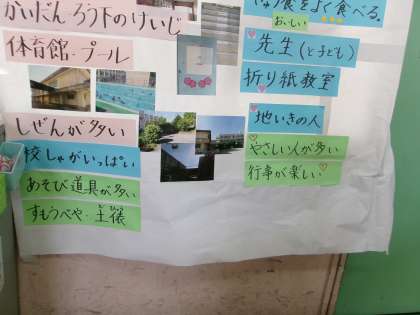 かいだん ろう下のけいじ
体育館・プール
しぜんが多い
校しゃがいっぱい
あそび道具が多い
すもうべや・土俵
食をよく食べる。
おいしい
先生(と子ども)
折り紙教室
地いきの人
やさしい人が多い
行事が楽しい